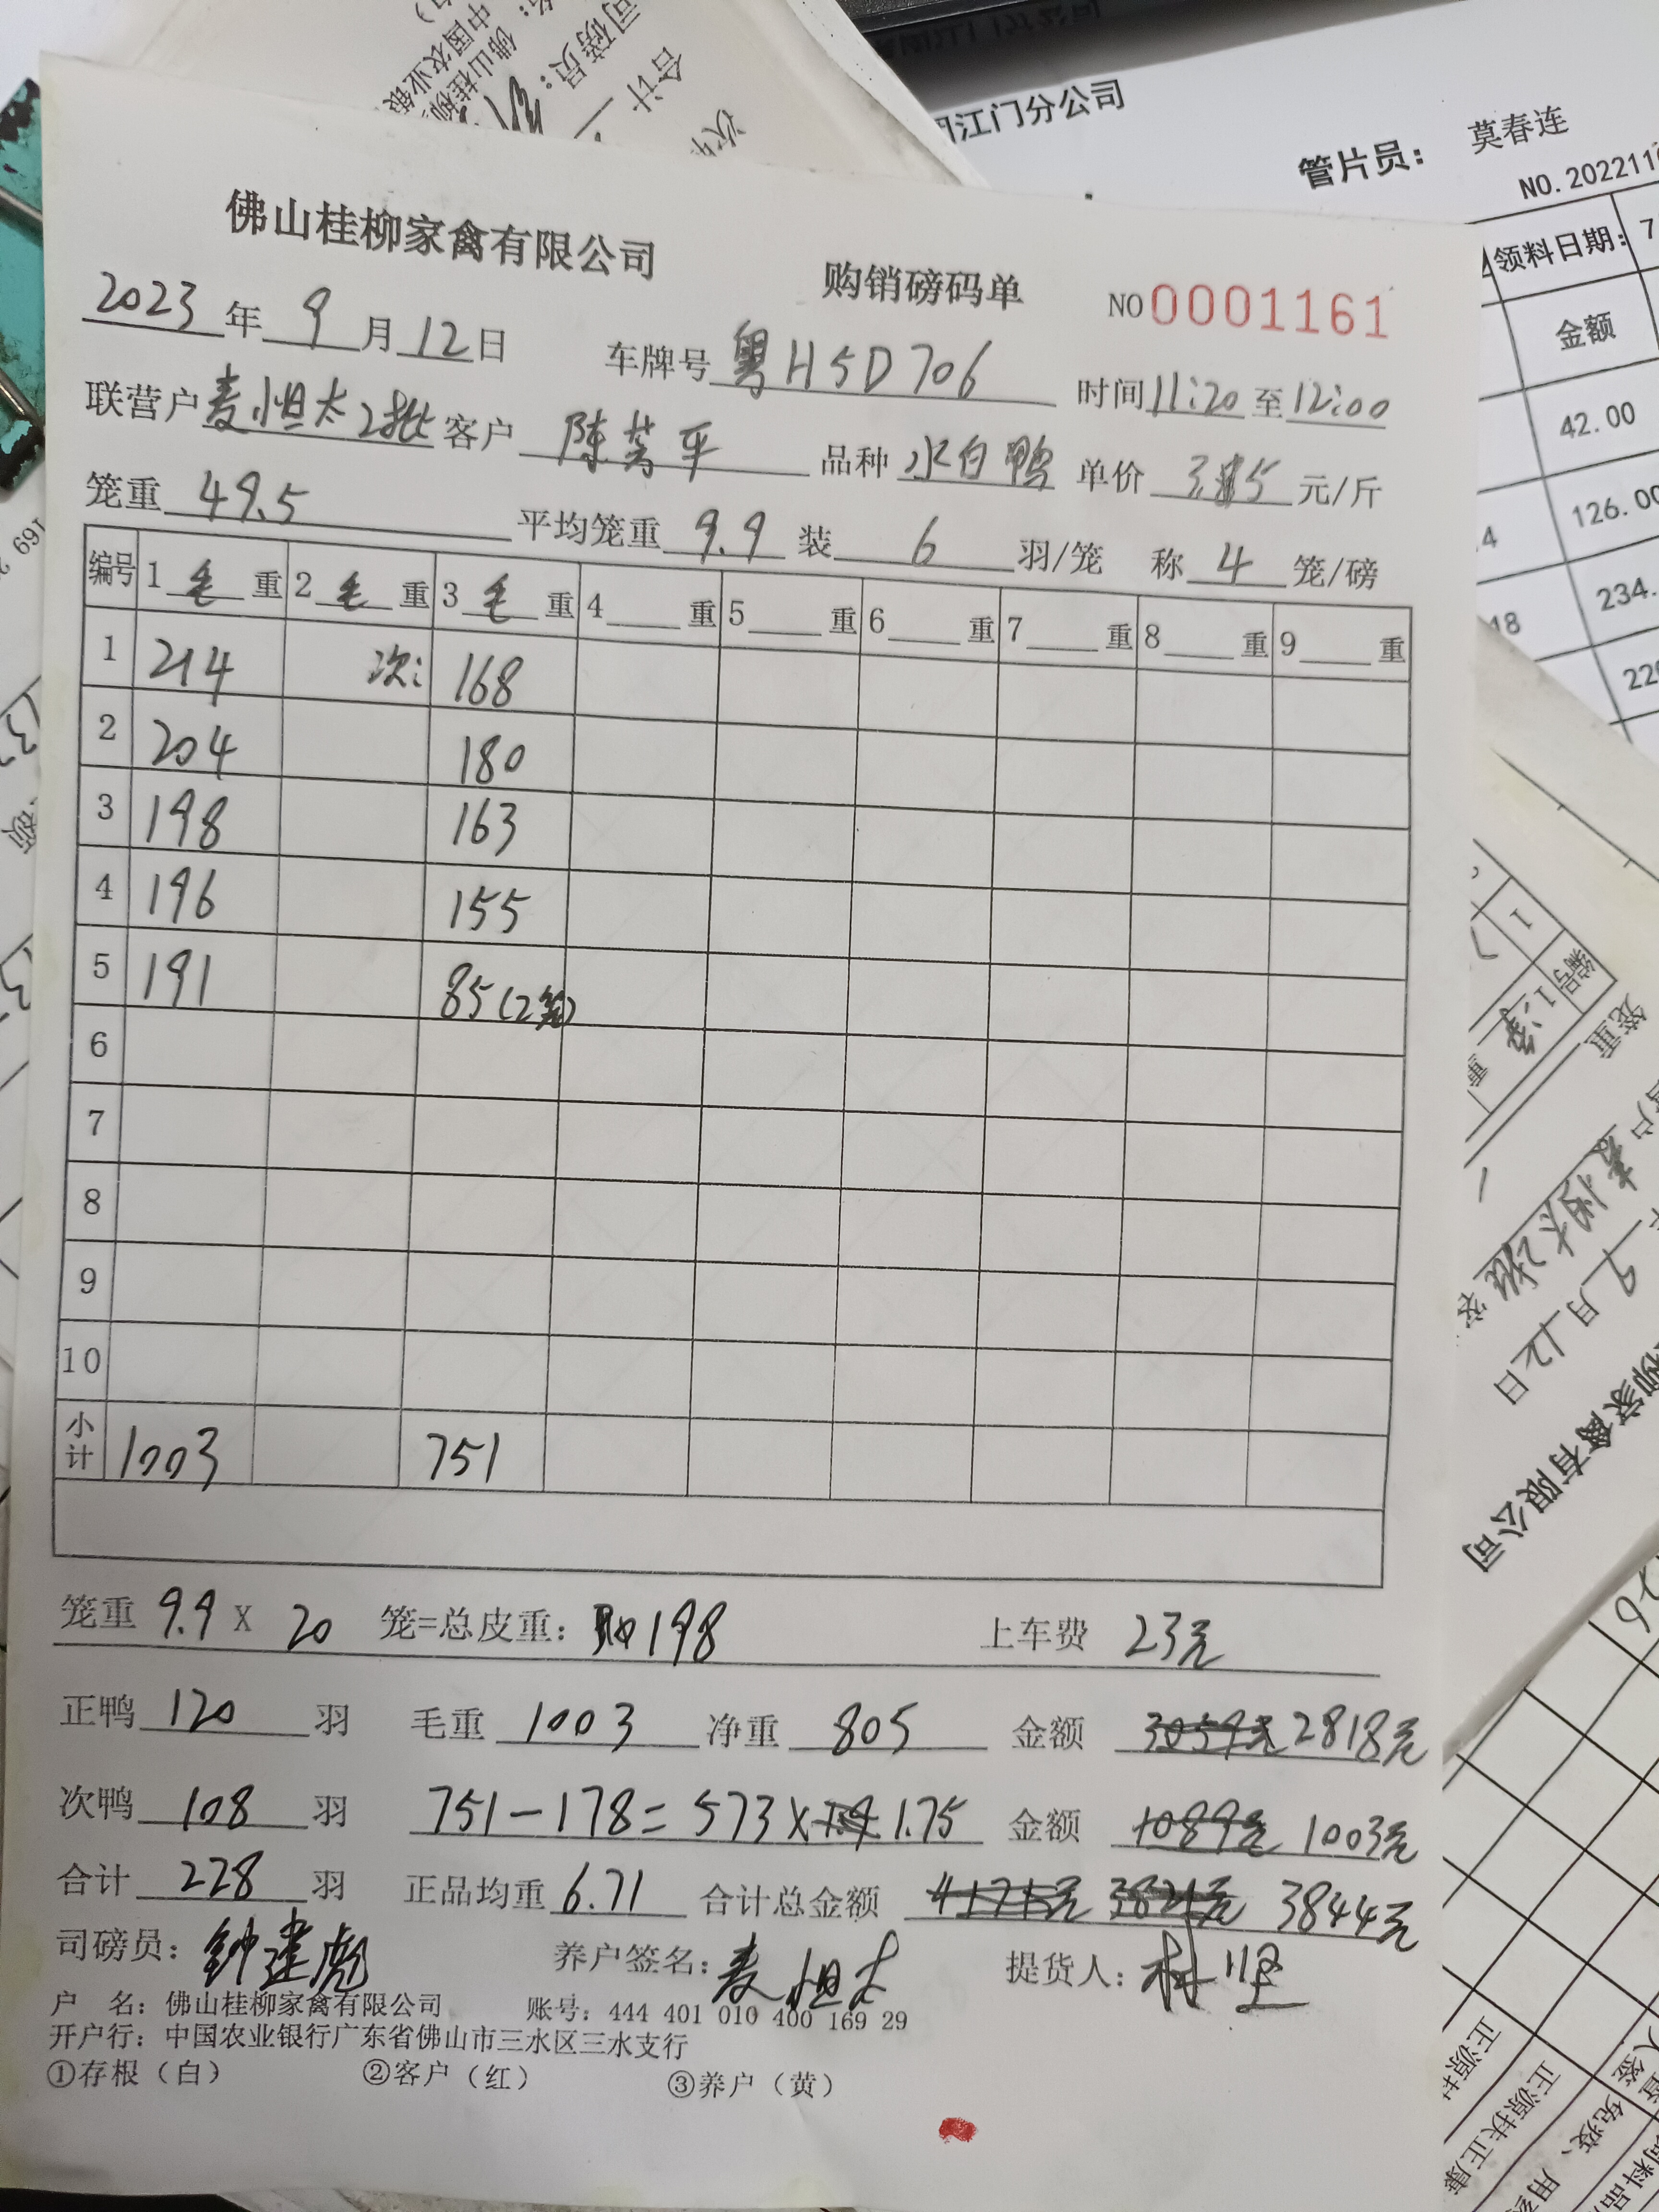 佛山桂柳家禽有限公司 购销磅码单 NO 0001161
2023年9月12日 车牌号 粤H5D706 时间 11:20 至 12:00
联营户 麦恒太2批 客户 陈 平 品种 水白鸭 单价 元/斤
笼重 49.5 平均笼重 9.9 装 6 羽/笼 称 4 笼/磅
编号 1 毛 重 2 毛 重 3 毛 重 4 重 5 重 6 重 7 重 8 重 9 重
1 214 次: 168
2 204 180
3 198 163
4 196 155
5 191 85(2笼)
6
7
8
9
10
小计 1003 751
笼重 9.9 X 20 笼=总皮重: 198 上车费 23元
正鸭 120 羽 毛重 1003 净重 805 金额 3059元 2818元
次鸭 108 羽 751-178=573× 1.75 金额 1089元 1003元
合计 228 羽 正品均重 6.71 合计总金额 3821元 3844元
司磅员: 钟建彪 养户签名: 麦恒太 提货人:
户 名: 佛山桂柳家禽有限公司 账号: 444 401 010 400 169 29
开户行: 中国农业银行广东省佛山市三水区三水支行
①存根（白） ②客户（红） ③养户（黄）
江门分公司
管片员: 莫春连
NO.202211
领料日期: 7
金额
42.00
126.00
234.
18
合计
司磅员:
中国农业银
佛山桂柳
编号 1
笼重
9月12日
柳家禽有限公司
正源扶正康
免疫、用